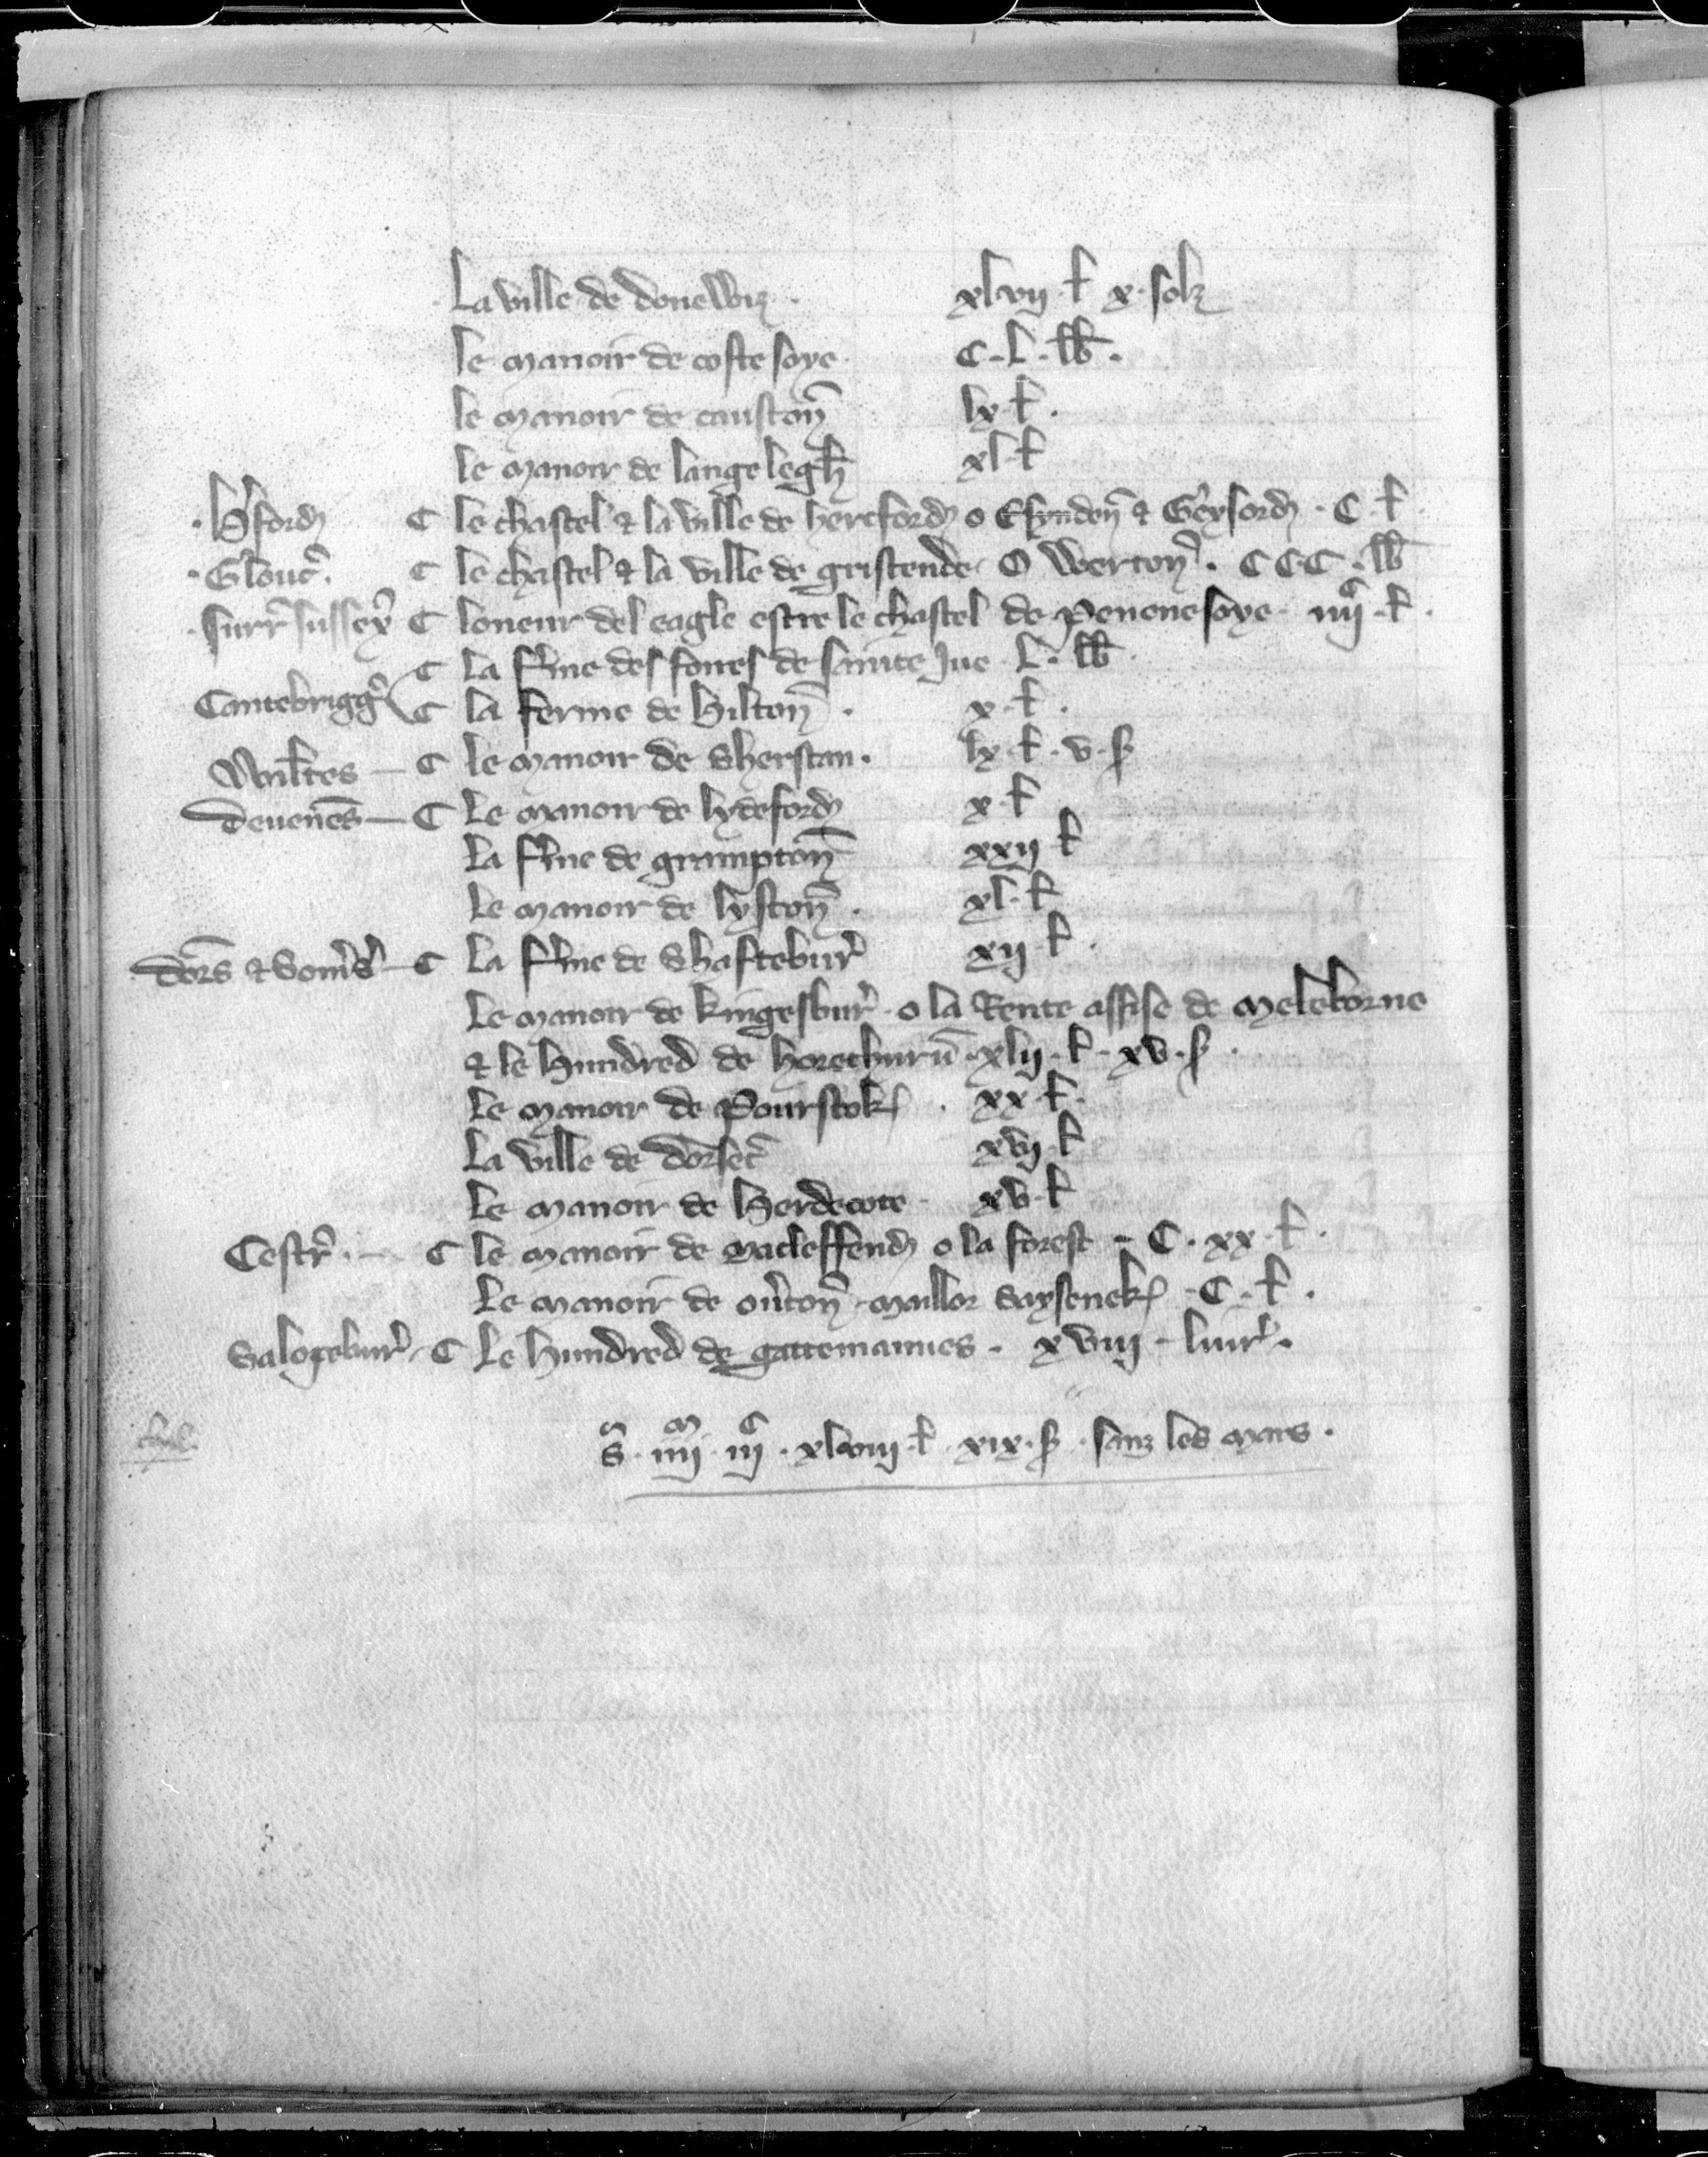 La ville de donewiz . xlvij ł x. solz
le manoir de costeseye . C . L . łł .
le manoir de caustoñ lx . ł .
le manoir de langelegħ xl . ł
. H'ford C le chastel & la ville de hereford o & G . C . ł
. Glouc'. C le chastel & la ville de gristende O Wertoñ . C C C . łł
. Surr' sussex' C loneur del eagle estre le chastel de peueneseye . iiijC . ł .
C la f'me des foires de sainte Iue . L . łł .
Cantebrigg' C la ferme de hiltoñ . x . ł .
Wiłtes — C le manoir de Sherstan . lx . ł . v . s
Deueñes — C Le manoir de lydeford x . ł
La f'me de grimptoñ xxij ł
Le manoir de lystoñ . xl . ł
Dors & Som's' — C La f'me de Shaftebur' xij . ł .
Le manoir de kingesbur' . o la Rente assise de meleborne
& le hundred de horethurñ . xlij . ł . xv . s .
Le manoir de Pourstok . xx . ł .
La ville de dorsec' xvij . ł
Le manoir de herdecote . xv . ł
Cestr' . — C le manoir de maclesfend o la forest – C . xx . ł .
Le manoir de ou'toñ . maillor Saysenek . C . ł .
Salopebur' . C Le hundred de gattemannes . xviij – liur' .
S . iiijM . iijC . xlviij . ł . xix . s . sanz les mars .